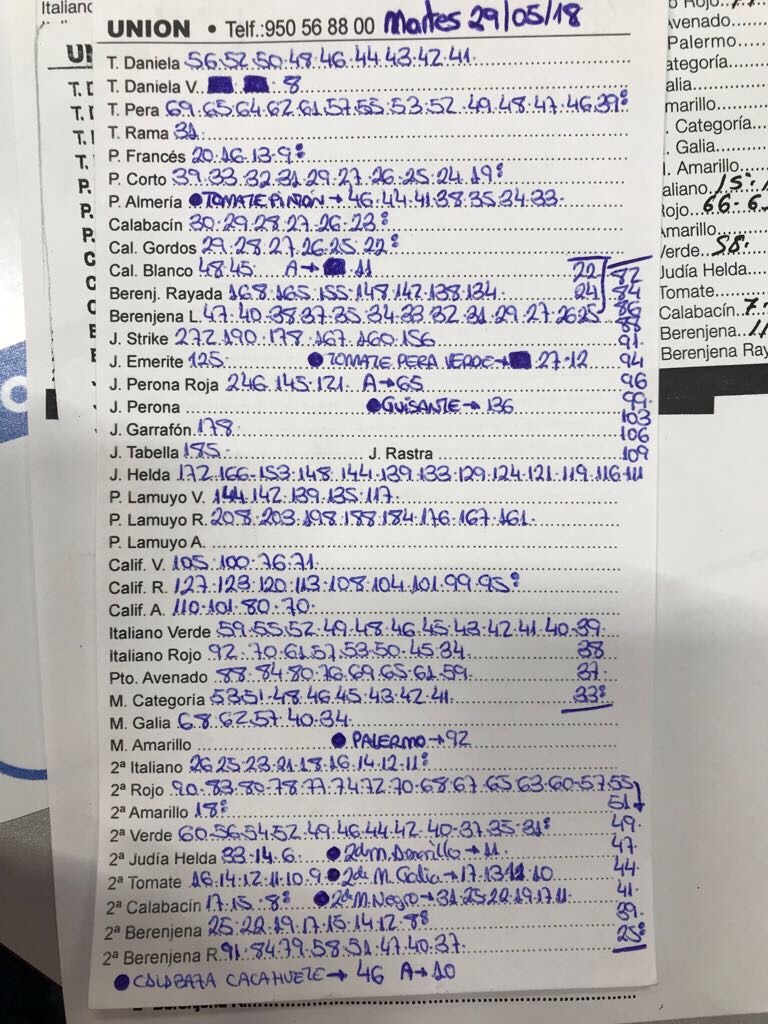 UNION • Telf.:950 56 88 00 Martes 29/05/18
T. Daniela 56.52.50.48.46.44.43.42.41.
T. Daniela V. 8
T. Pera 69.65.64.62.61.57.55.53.52.49.48.47.46.39:
T. Rama 31.
P. Francés 20.16.13.9:
P. Corto 39.33.32.31.29.27.26.25.24.19:
P. Almería ●TOMATE PIÑON→46.44.41.38.35.34.33.
Calabacín 30.29.28.27.26.23:
Cal. Gordos 29.28.27.26.25.22:
Cal. Blanco 48.45. A→ 11 22 82
Berenj. Rayada 168.165.155.148.142.138.134. 24 84
Berenjena L. 47.40.38.37.35.34.33.32.31.29.27.26.25 86
88
J. Strike 272.190.178.167.160.156 91.
J. Emerite 125. ●TOMATE PERA VERDE→ 27.12 94
J. Perona Roja 246.145.121. A→65 96
J. Perona ●GUISANTE→136 99.
103
J. Garrafón 178. 106
J. Tabella 185. J. Rastra 109
J. Helda 172.166.153.148.144.139.133.129.124.121.119.116.111
P. Lamuyo V. 144.142.139.135.117.
P. Lamuyo R. 208.203.198.188.184.176.167.161.
P. Lamuyo A.
Calif. V. 105.100.76.71.
Calif. R. 127.123.120.113.108.104.101.99.95:
Calif. A. 110.101.80.70.
Italiano Verde 59.55.52.49.48.46.45.43.42.41.40.39.
Italiano Rojo 92.70.61.57.53.50.45.34. 38
Pto. Avenado 88.84.80.76.69.65.61.59. 37.
M. Categoría 53.51.48.46.45.43.42.41. 33:
M. Galia 68.62.57.40.34.
M. Amarillo ●PALERMO→92
2ª Italiano 26.25.23.21.18.16.14.12.11:
2ª Rojo 90.83.80.78.77.74.72.70.68.67.65.63.60.57.55
2ª Amarillo 18: 51
2ª Verde 60.56.54.52.49.46.44.42.40.37.35.31: 49.
2ª Judía Helda 33.14.6. ●2ªde M. Amarillo→11. 47.
2ª Tomate 16.14.12.11.10.9 ●2ªde M. Galia→17.13.11.10 44
2ª Calabacín 17.15.8: ●2ªde M. Negro→31.25.22.19.17.11 41.
2ª Berenjena 25.22.19.17.15.14.12.8: 39.
2ª Berenjena R. 91.84.79.58.51.47.40.37. 25:
●CALABAZA CACAHUETE→46 A→10
Italiano
Rojo
Avenado
Palermo
M. Categoría
Galia
Amarillo
Categoría
Galia
Amarillo
Italiano 15.
Rojo 66.
Amarillo
Verde 58.
Judía Helda
Tomate
Calabacín 7.
Berenjena 11
Berenjena Ray